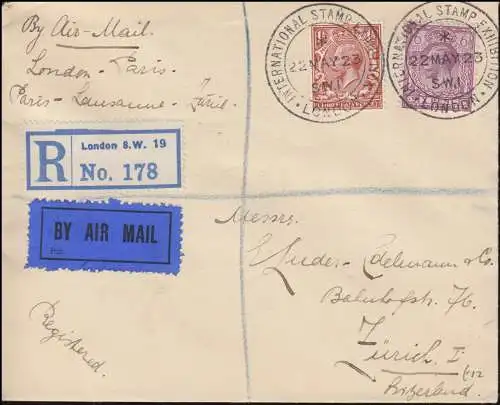 By Air-Mail.
London - Paris.
Paris - Lausanne - Zürich.
INTERNATIONAL STAMP EXHIBITION
22 MAY 23
S.W.1
· LONDON ·
INTERNATIONAL STAMP EXHIBITION
*
22 MAY 23
S.W.1
· LONDON ·
R
London S.W. 19
No. 178
BY AIR MAIL
Messrs.
Edelmann & Co.
Bahnhofstr. 76.
Zürich I
Switzerland.
Registered.